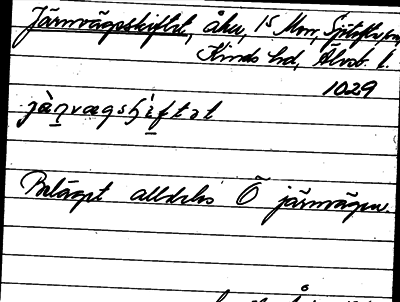 Järnvägsskiftet, åker, 15 Mom, Sjötofta sn,
Kinds hd, Älvsb. l.
1029
jà̀ṉvægsɧi̱ftət
Beläget alldeles Ö järnvägen.